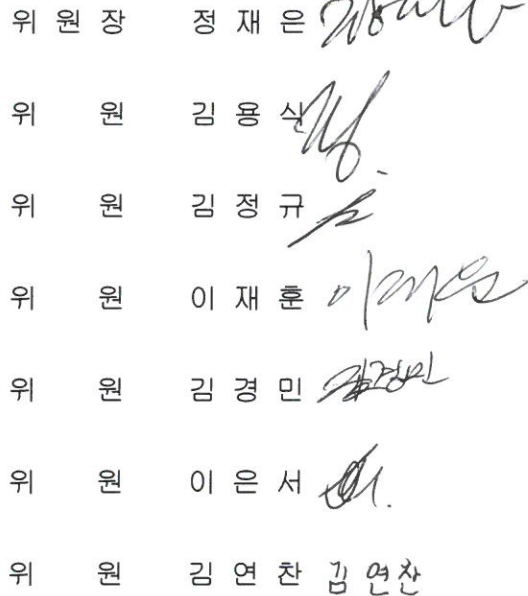 위 원 장 정 재 은
위 원 김 용 식
위 원 김 정 규
위 원 이 재 훈
위 원 김 경 민 김경민
위 원 이 은 서
위 원 김 연 찬 김 연 찬